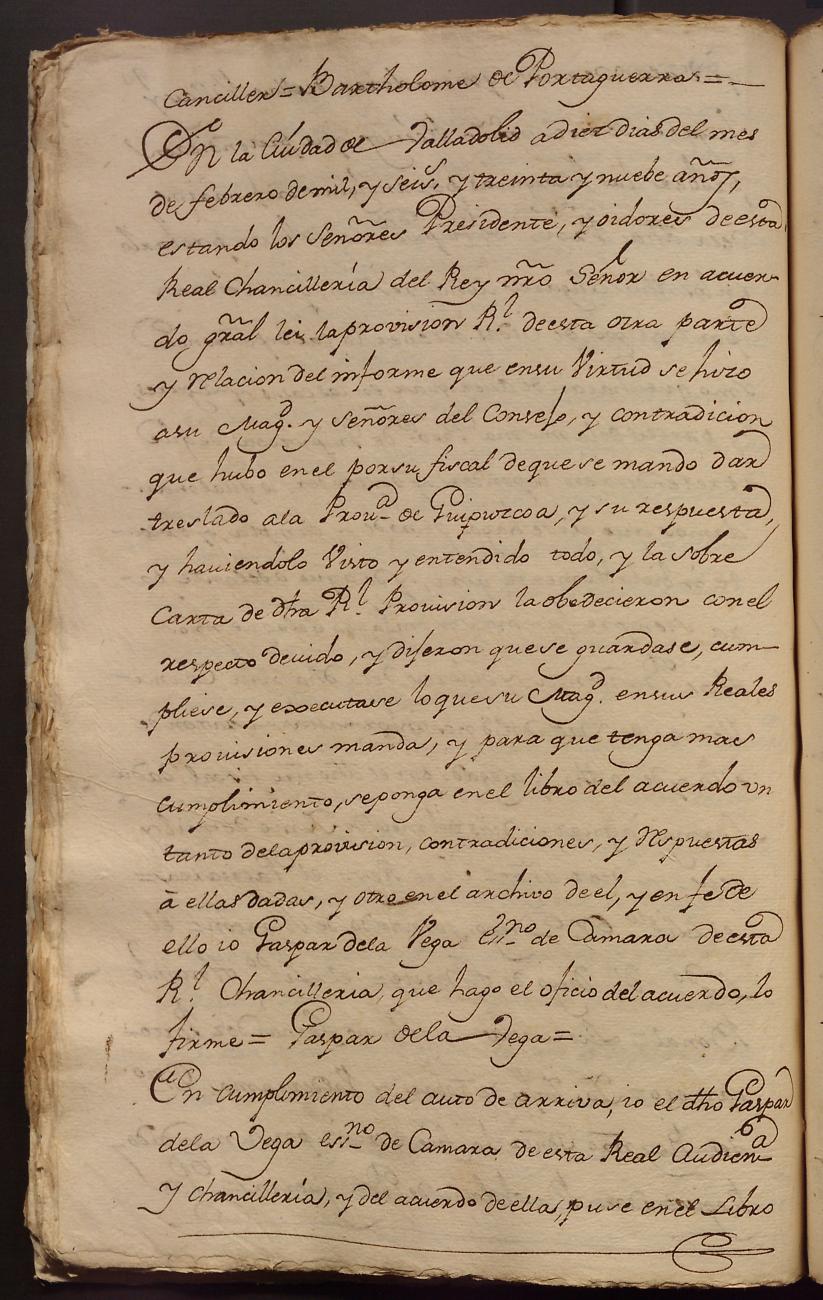 Canciller = Bartholome de Portaguerra =
En la Ciudad de Valladolid a diez dias del mes
de febrero de mil, y seis.s y treinta y nuebe años,
estando los Señores Presidente, y oidores de esta
Real Chancillería del Rey nrõ Señor en acuer-
do grãl lei la provision R.l de esta otra parte
y relacion del informe que en su Virtud se hizo
a su Mag.d y Señores del Consejo, y contradicion
que hubo en el por su fiscal de que se mando dar
treslado a la Prou.a de Guipuzcoa, y su respuesta,
y haviendolo Visto y entendido todo, y la sobre
Carta de dha R.l Provision la obedecieron con el
respecto devido, y dijeron que se guardase, cum-
pliese, y executase lo que su Mag.d en sus Reales
provisiones manda, y para que tenga mas
cumplimiento, se ponga en el libro del acuerdo vn
tanto de la provision, contradiciones, y respuestas
à ellas dadas, y otro en el archivo de el, y en fe de
ello io Gaspar de la Vega es.no de Camara de esta
R.l Chancilleria, que hago el oficio del acuerdo, lo
firme = Gaspar de la Vega =
En cumplimiento del auto de arriva, io el dho Gaspar
de la Vega es.no de Camara de esta Real Audien.a
y chancillería, y del acuerdo de ella, puse en el Libro